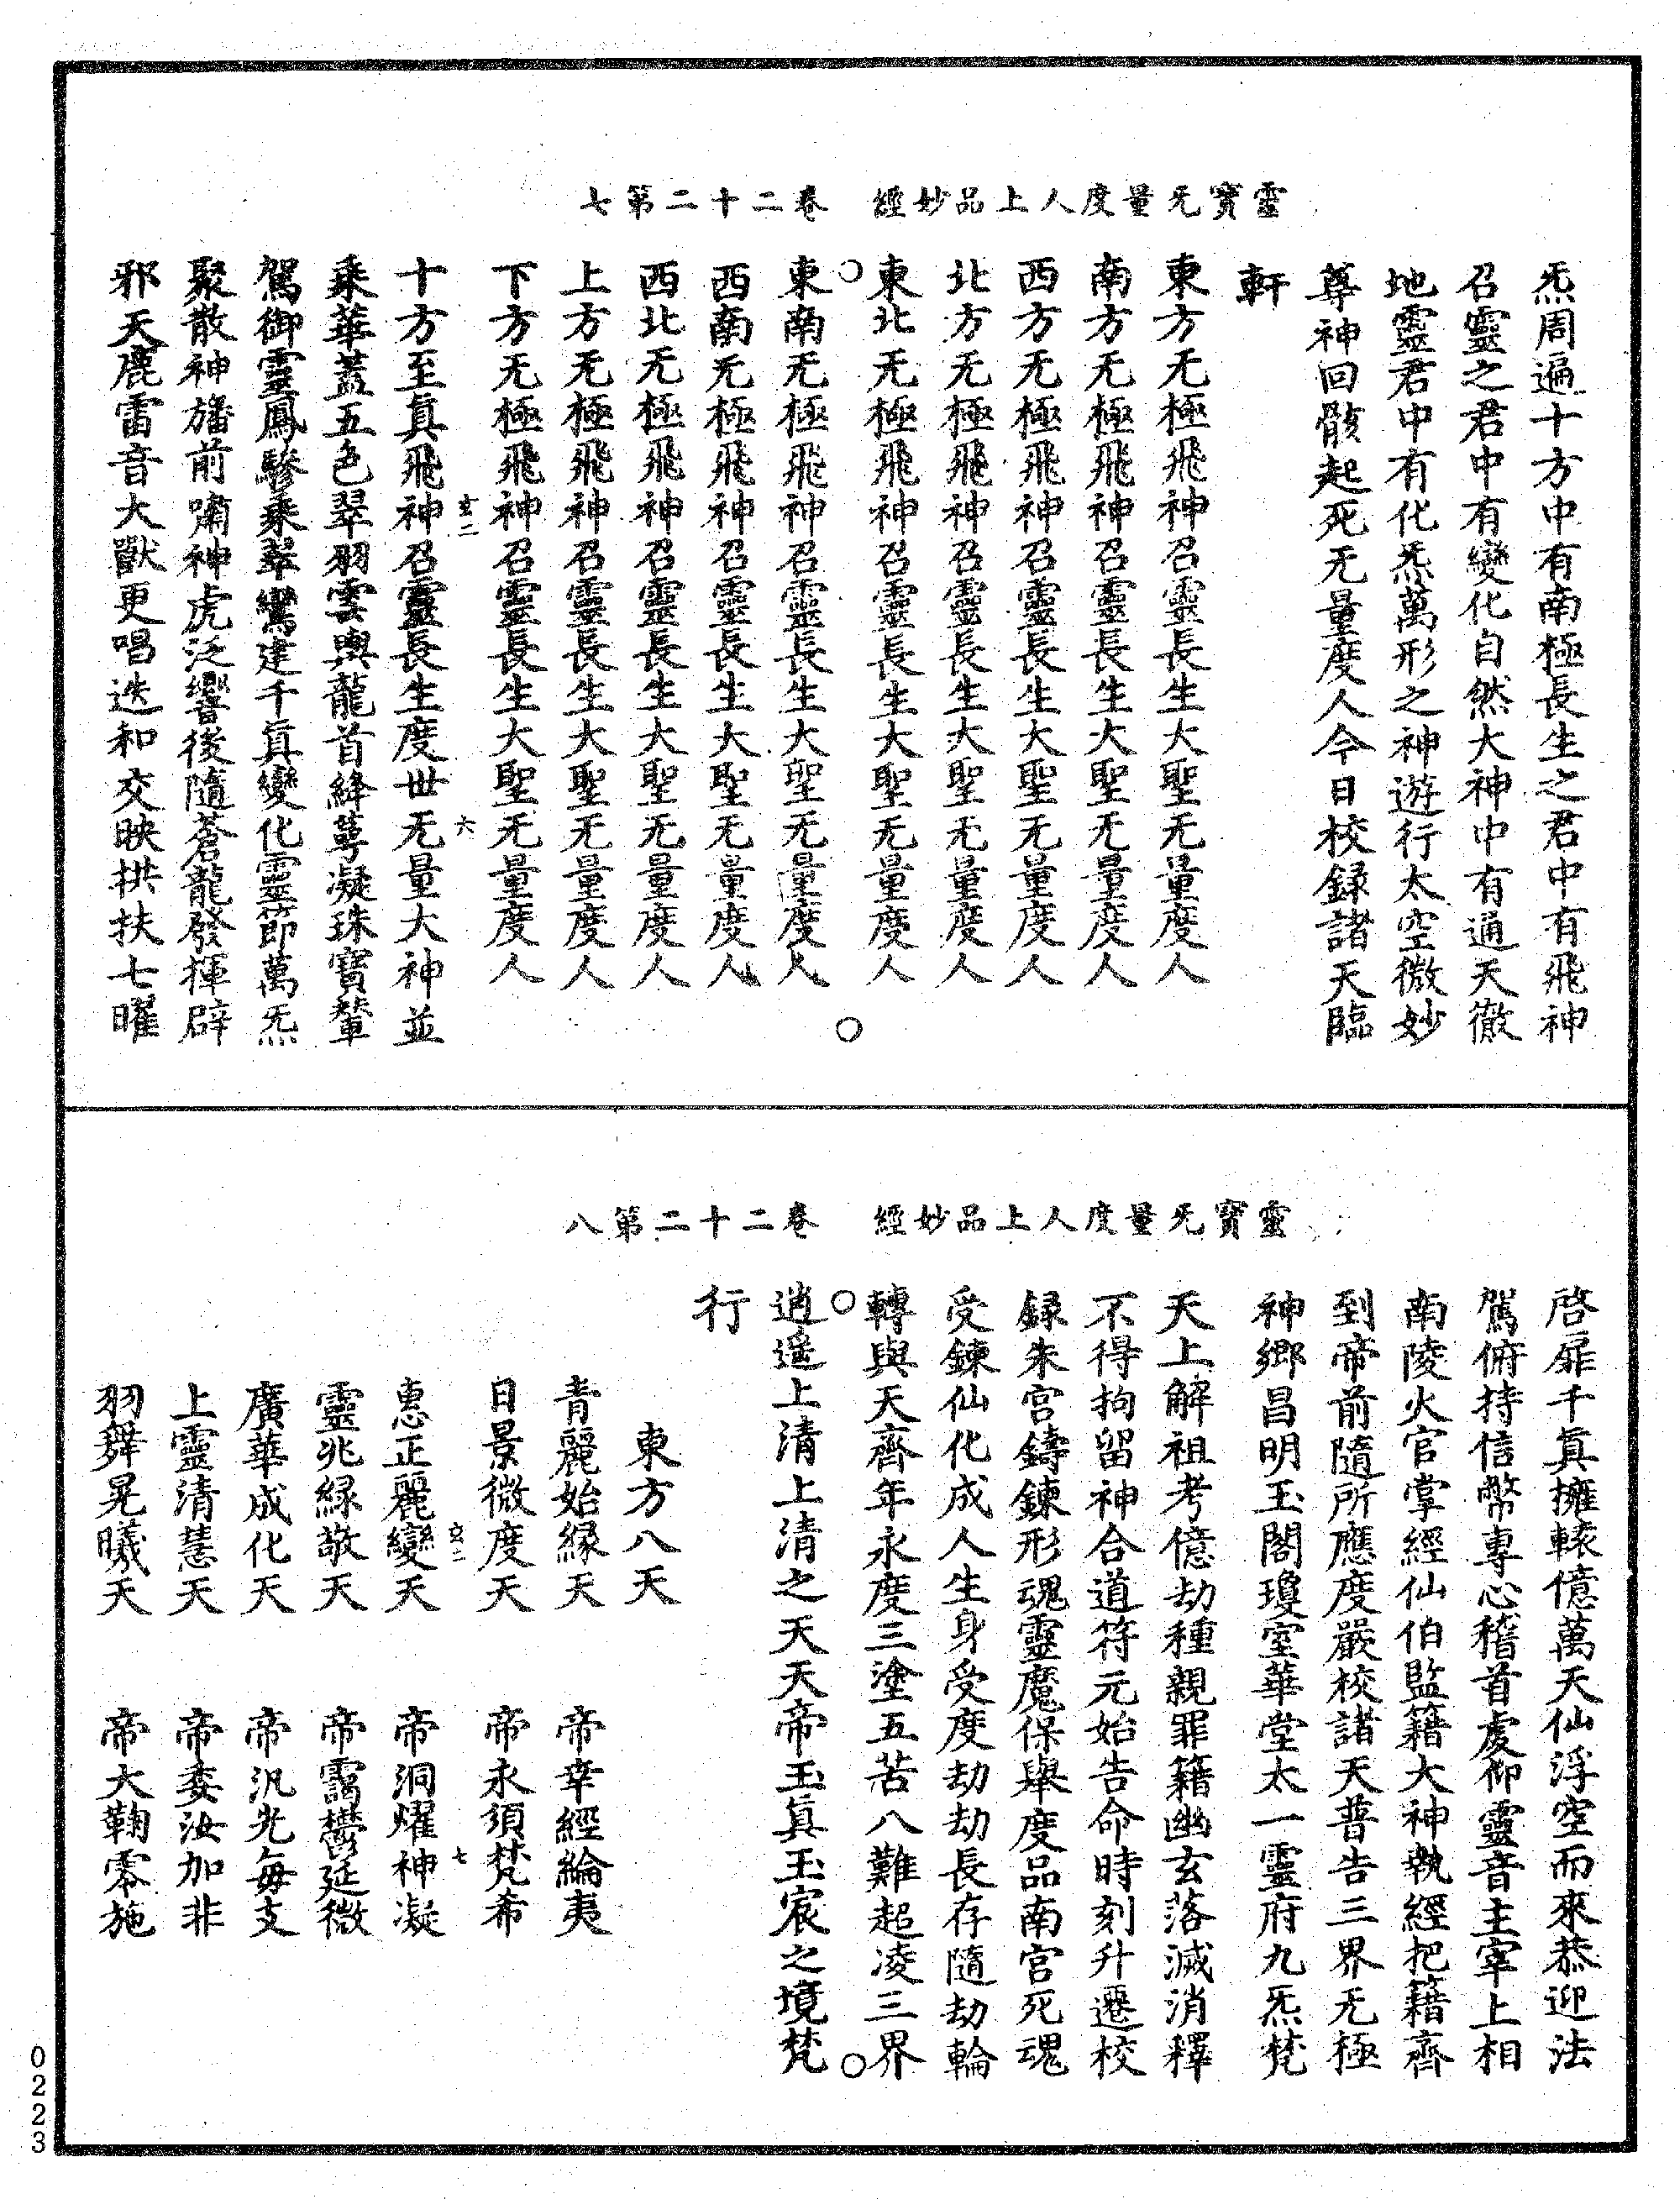 靈寶无量度人上品妙經　卷二十二第七
炁周遍十方中有南極長生之君中有飛神
召靈之君中有變化自然大神中有通天徹
地靈君中有化炁萬形之神遊行太空微妙
尊神回骸起死无量度人今日校錄諸天臨
軒
東方无極飛神召靈長生大聖无量度人
南方无極飛神召靈長生大聖无量度人
西方无極飛神召靈長生大聖无量度人
北方无極飛神召靈長生大聖无量度人
東北无極飛神召靈長生大聖无量度人
○　○
東南无極飛神召靈長生大聖无量度人
西南无極飛神召靈長生大聖无量度人
西北无極飛神召靈長生大聖无量度人
上方无極飛神召靈長生大聖无量度人
下方无極飛神召靈長生大聖无量度人
玄二　六
十方至真飛神召靈長生度世无量大神並
乘華蓋五色翠羽雲輿龍首絳萼凝珠寶輦
駕御靈鳳驂乘翠鸞建千真變化靈節萬炁
聚散神旛前嘯神虎泛響後隨蒼龍發揮辟
邪天鹿雷音大獸更唱迭和交映拱扶七曜
靈寶无量度人上品妙經　卷二十二第八
啓扉千真擁轅億萬天仙浮空而來恭迎法
駕俯持信幣專心稽首處仰靈音主宰上相
南陵火官掌經仙伯監籍大神執經把籍齊
到帝前隨所應度嚴校諸天普告三界无極
神鄉昌明玉閣瓊室華堂太一靈府九炁梵
天上解祖考億劫種親罪籍幽玄落滅消釋
不得拘留神合道符元始告命時刻升遷校
錄朱宮鑄鍊形魂靈魔保舉度品南宮死魂
受鍊仙化成人生身受度劫劫長存隨劫輪
轉與天齊年永度三塗五苦八難超凌三界
○　○
逍遥上清上清之天天帝玉真玉宸之境梵
行
東方八天
青麗始緣天　帝幸經綸夷
日景微度天　帝永須梵希
玄二　七
惠正麗變天　帝洞耀神凝
靈兆緑敬天　帝靄欝延微
廣華成化天　帝汎光毎支
上靈清慧天　帝委汝加非
羽舞晃曦天　帝大鞠零施
0223